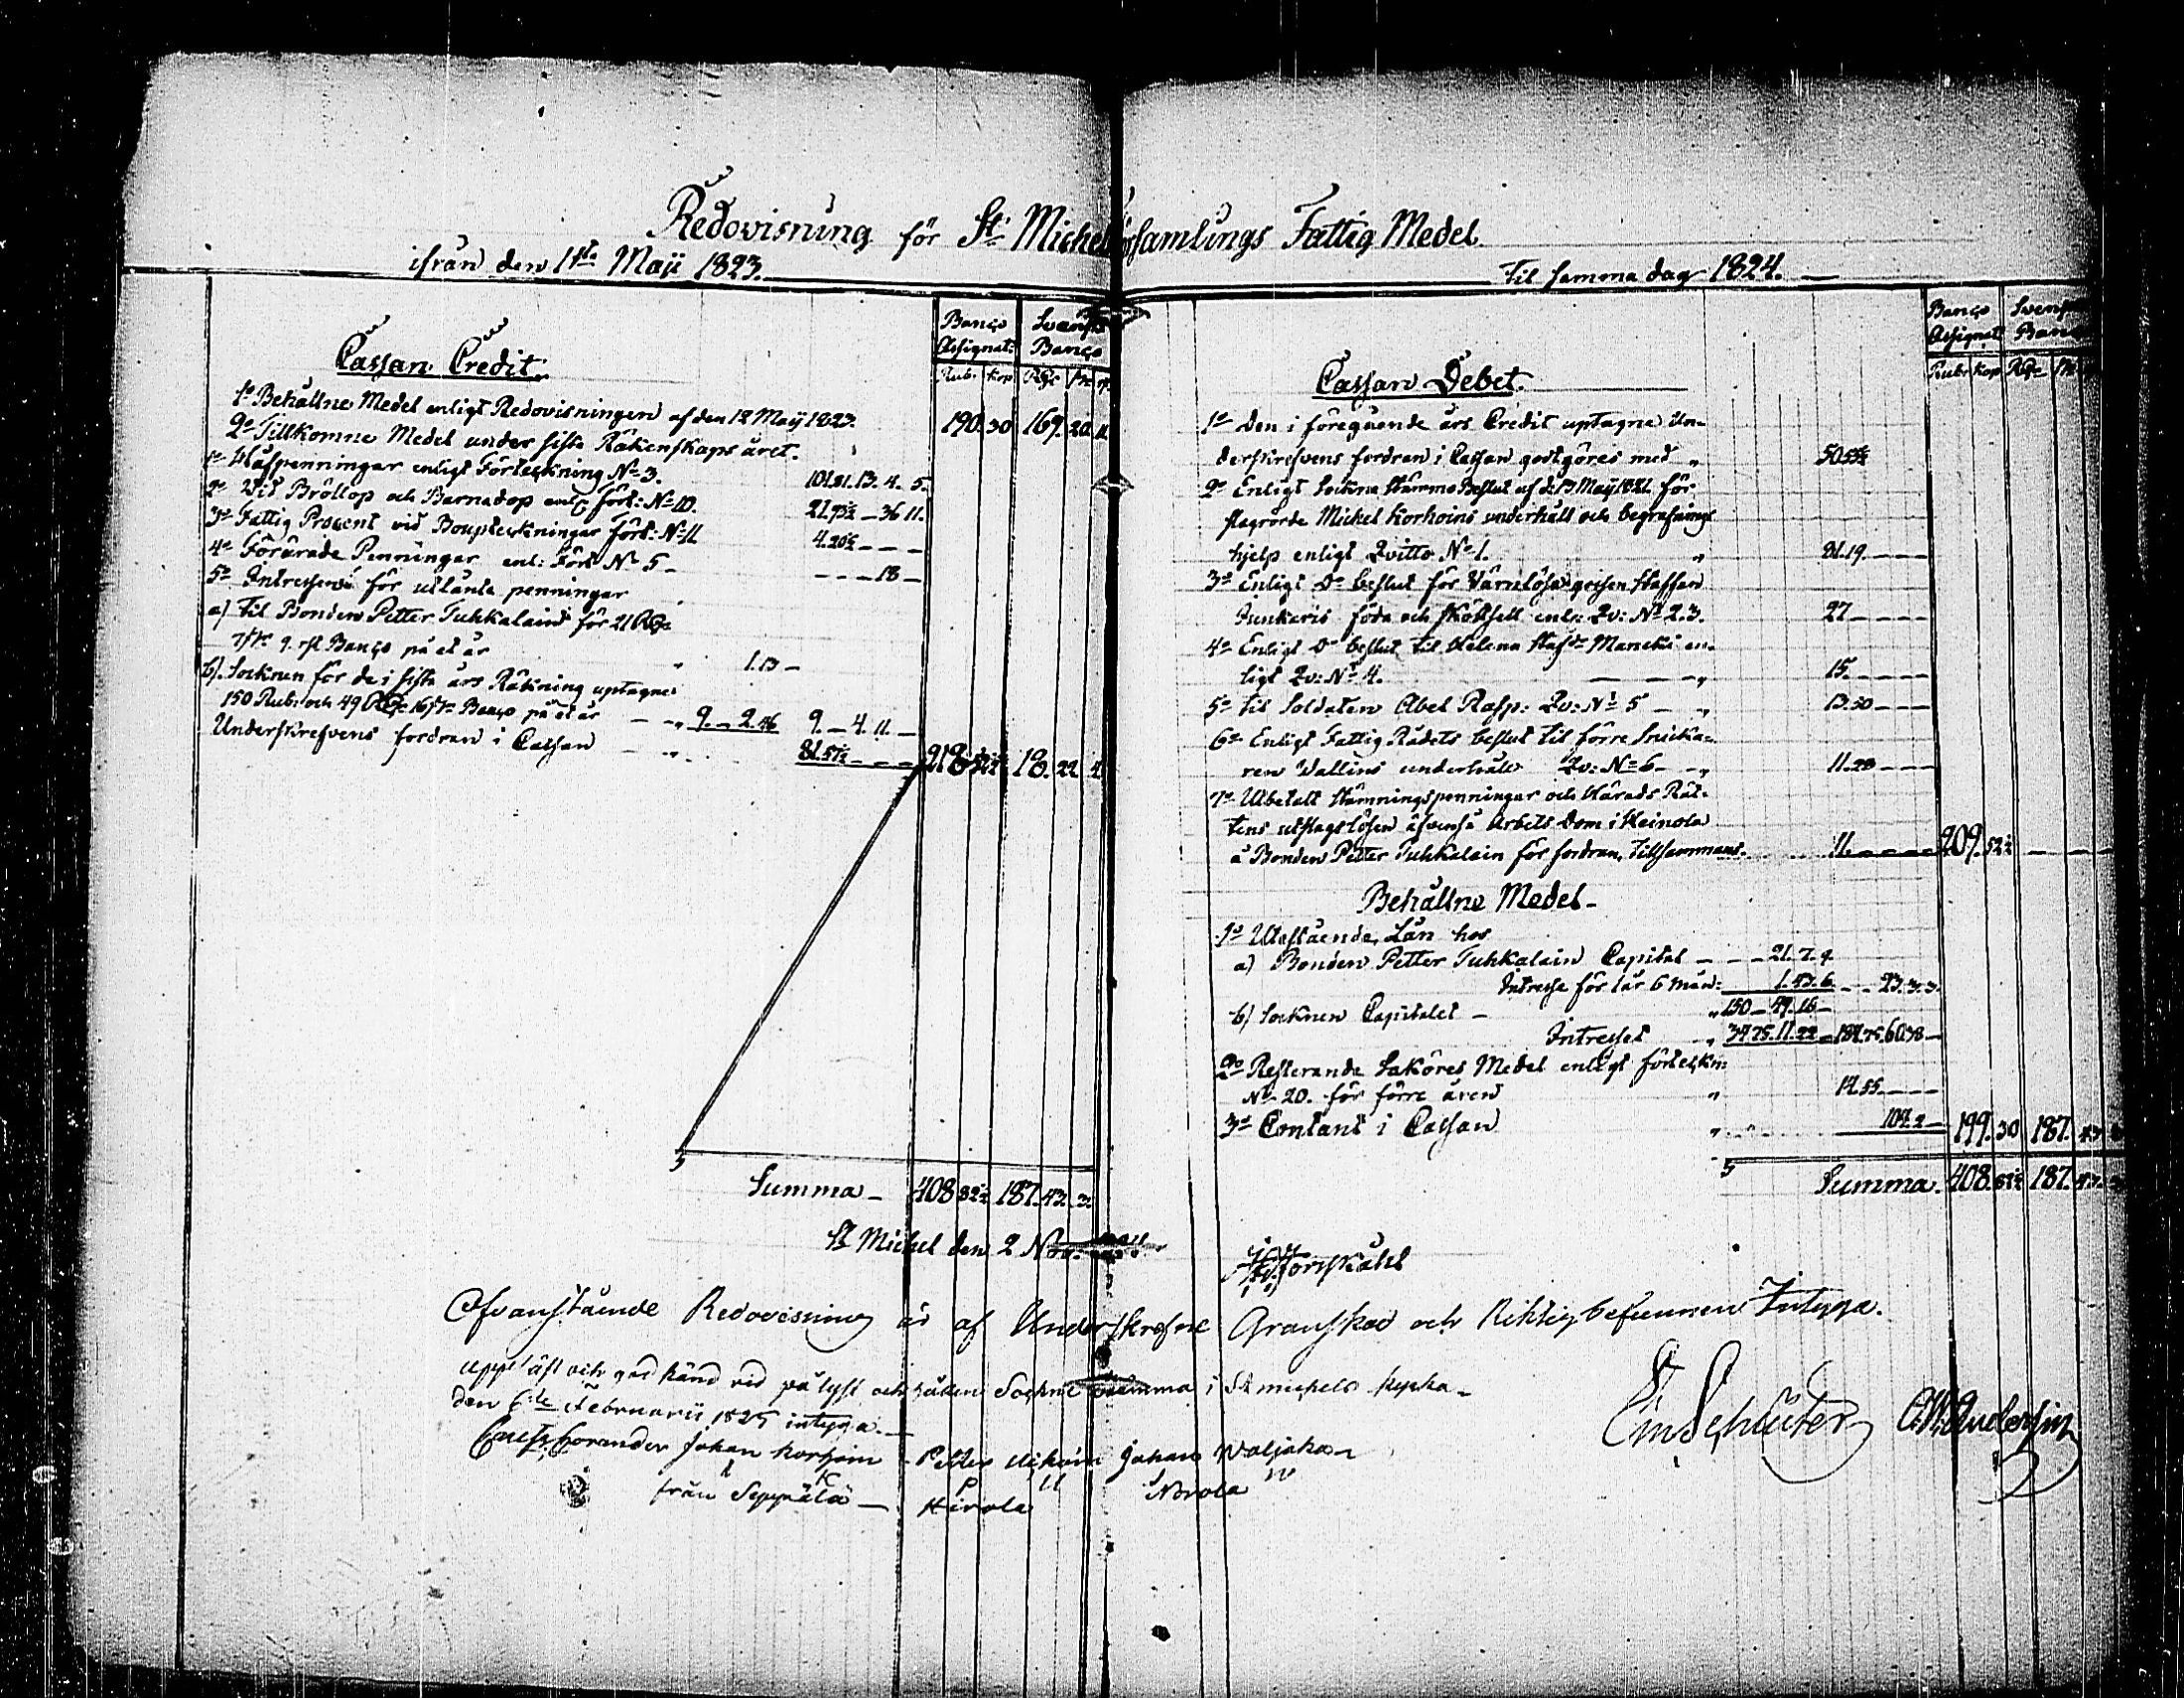 Redovisning för St. Michels församlings Fattig Medel
ifrån den 1sta Maji 1823. til samma dag 1824.
Banco Assignat: Svensk Banco
Rub. Kop. Rdr
Cassan Credit.
1o Behållne Medel enligt Redovisningen af den 12 Maij 1823. 190. 30 169. 20. 11
2o Tillkomne Medel under sista Räkenskaps året.
1o Håfpenningar enligt Förteckning No 3. 101.81. 13. 4. 5.
2o Vid Bröllop och Barnadop enl: fört: No 10. 21.93½ – 36 11.
3o Fattig Procent vid Boupteckningar fört: No 11 4.20½ – – –
4o Förärade Penningar enl: Fört No 5 – – – – 18 –
5o Intressen för utlånte penningar
a) Til Bonden Petter Tuhkalain för 21 Rdr
7 s. 9. rst Banco på et år 1.13 –
b). Socknen för de i sista års Räkning uptagne
150 Rub: och 49 Rdr 16 s. Banco på et år – – 9. – 2.46 9 – 4. 11. –
Underskrefvens fordran i Cassan – 81.57½ – – – 218. 52½ 18. 22. 4
Summa – 408 82½ 187. 43. 3.
St Michel den 2 Nov.
Banco Assignat Svensk Banco
Rubr Kop Rdr
Cassan Debet.
1o Den i föregående års Credit uptagne Un-
derskrefvens fordran i Cassan godtgöres med „ 50.55½
2o Enligt Sockne Stämmo Beslut af d: 13 Maij 1821 för
slagrörde Michel Korhoins underhåll och begrafnings
hjelp enligt Qvitto No 1. „ 81.19. – – –
3o Enligt Do beslut för värnlösa gossen Staffan
Junkaris föda och skötsell enl: Qv: No 2.3. 27 – – – –
4o Enligt Do beslut til Helena Stafsdr Manckis en-
ligt Qv: No 4. – – – „ 15. – – – –
5o til Soldaten Abel Rasp: Qv: No 5 – „ 13.50 – – –
6o Enligt Fattig Rådets beslut til förre Snicka-
ren Wallins underhåll Qv: No 6 – „ 11.28 – – –
7o Utbetalt Stämningspenningar och Härads Rät-
tens utslags lösen äfvenså Arbets Dom i Heinola
å Bonden Petter Tuhkalain för fordran, tillsammans. 11. – – – – 209. 52½ – – –
Behållne Medel –
1o Utestående Lån hos
a) Bonden Petter Tuhkalain Capital – – – 21. 7. 9.
Intresse för 1 år 6 mån: 1. 43. 6 – – 23. 3. 3.
b) Socknen Capitalet – „ 150 – 49. 16 –
Intresset „ 34.75. 11. 22 – 184.75. 60.38 –
2o Resterande Saköres Medel enligt förteckn:
No 20. för förre åren „ 14.55. – – –
3o Contant i Cassan „ 104. 2 – 199. 30 187. 43
Summa. 408. 82½ 187. 43.
Forskåhl
Ofvanstående Redovisning är af Underskrefne Granskad och Riktig befunnen Intyga.
Em Schlüter A.W. Andersin
Uppläst och godkänd vid pålyst och hållen Sockne stämma i St Michels kyrka –
den 6te Februarii 1825 intyga. –
Johan Korhoin – Petter Johan Waljaka –
K P U W
från Seppälä – Hirola Norola